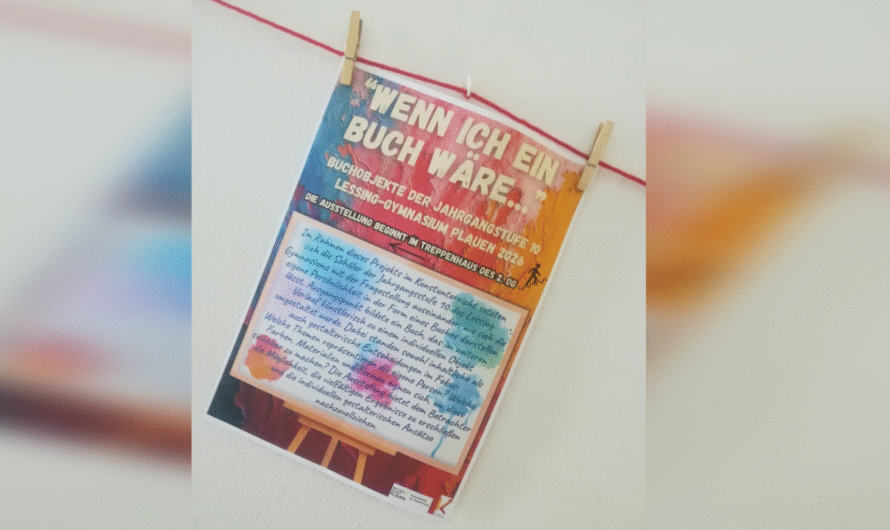 "WENN ICH EIN
BUCH WÄRE..."
BUCHOBJEKTE DER JAHRGANGSTUFE 10
LESSING-GYMNASIUM PLAUEN 2026
DIE AUSSTELLUNG BEGINNT IM TREPPENHAUS DES 2. OG
Im Rahmen dieses Projekts im Kunstunterricht setzten
sich die Schüler der Jahrgangsstufe 10 des Lessing-
Gymnasiums mit der Fragestellung auseinander, wie sich die
eigene Persönlichkeit in der Form eines Buches darstellen
lässt. Ausgangspunkt bildete ein Buch, das im weiteren
Verlauf künstlerisch zu einem individuellen Objekt
umgestaltet wurde. Dabei standen sowohl inhaltliche als
auch gestalterische Entscheidungen im Fokus:
Welche Themen repräsentieren die eigene Person? Welche
Farben, Materialien und Formen eignen sich, um diese
sichtbar zu machen? Die Ausstellung bietet dem Betrachter
die Möglichkeit, die vielfältigen Ergebnisse zu erschließen
und die individuellen gestalterischen Ansätze
nachzuvollziehen.